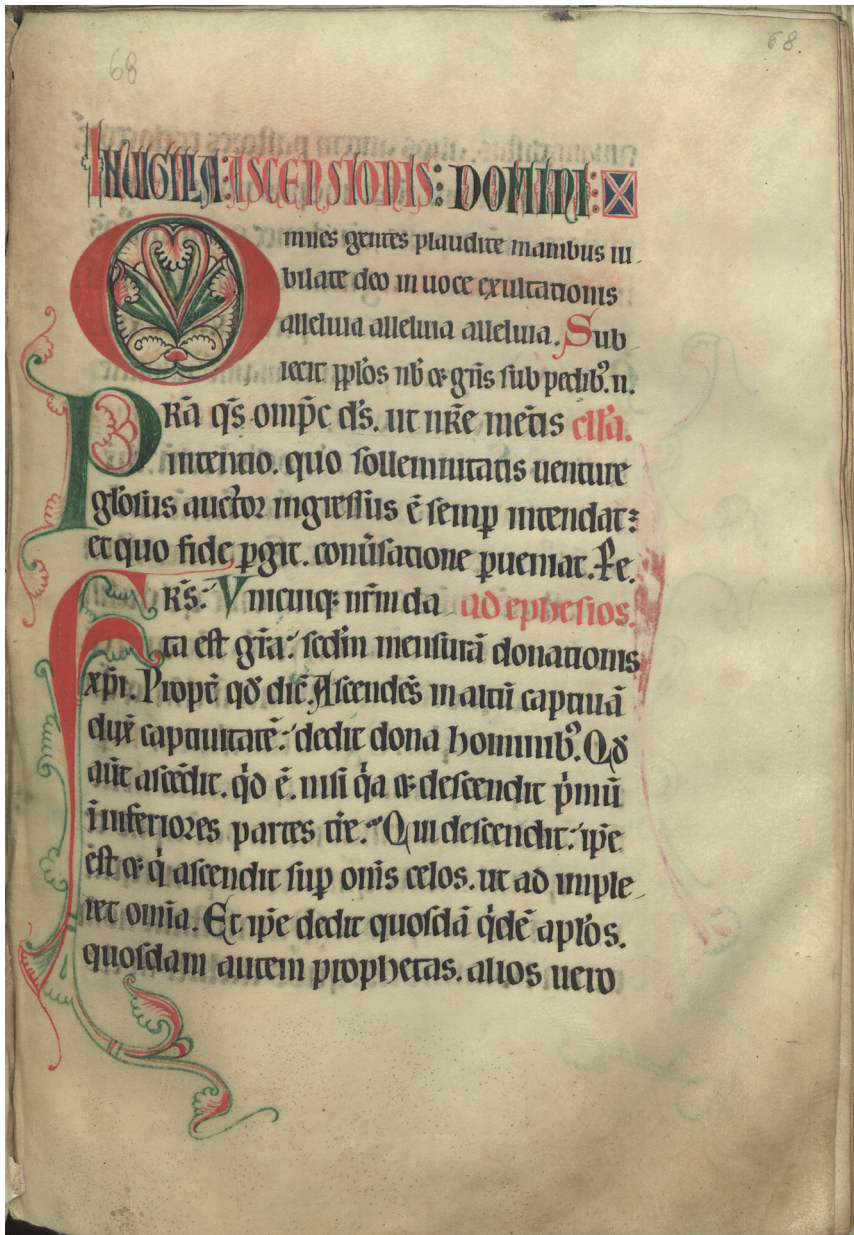 68 68.
IN UIGILIA: ASCENSIONIS: DOMINI:
Omnes gentes plaudite manibus iu-
bilate deo in uoce exultationis
alleluia alleluia alleluia. Sub
iecit pp̄los nob᷒ & gn̄s sub pedib᷒. n.
PRā q̄s omp̄c ds̄. ut nr̄e mētis
intentio. quo sollemnitatis uenture
gl̄osus auctor ingressus ē semꝑ intendat:
et quo fide ꝑgit. conūsatione ꝑueniat. Pe.
FRS̄: Vnicuiq; nr̄m da ad ephesios.
ta est gr̄a: sedm̄ mensurā donationis
xp̄i. Propt̄ qd̄ dic̄. Ascendēs in altū captiuā
dux̄ captiuitatē: dedit dona hominib᷒. Qd̄
aūt ascēdit. qd̄ ē. nisi qͥa & descendit pͥmū
īinferiores partes tr̄e. Qui descendit: ip̄e
est & qͥ ascendit suꝑ om̄s celos. ut ad imple-
ret omīa. Et ip̄e dedit quosdā qͥdē apl̄os.
quosdam autem prophetas. alios uero